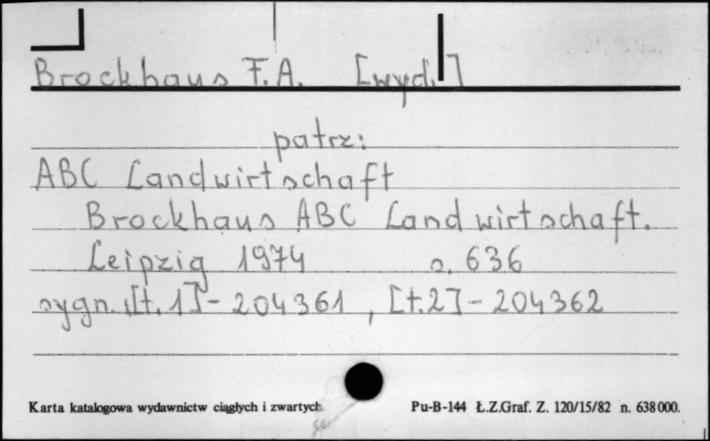 Brockhaus F.A. [wyd.]
patrz:
ABC Landwirtschaft
Brockhaus ABC Landwirtschaft.
Leipzig 1974 s. 636
sygn. [t. 1] - 204361, [t.2] - 204362
Karta katalogowa wydawnictw ciągłych i zwartych
Pu-B-144 Ł.Z.Graf. Z. 120/15/82 n. 638000.